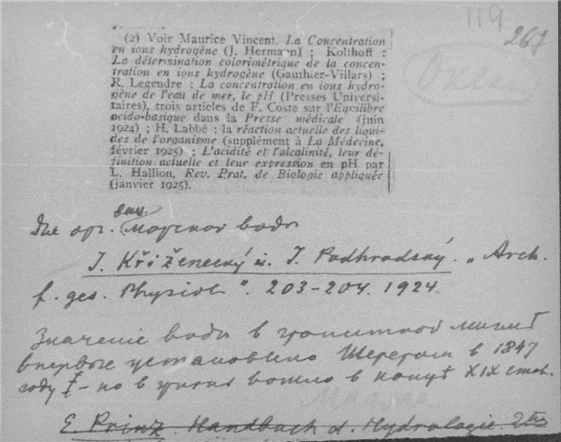 119
267
(2) Voir Maurice Vincent. La Concentration
en ions hydrogène (J. Hermann) ; Kolthoff :
La détermination colorimétrique de la concen-
tration en ions hydrogène (Gauthier-Villars) ;
R. Legendre : La concentration en ions hydro-
gène de l'eau de mer, le pH (Presses Universi-
taires), trois articles de F. Coste sur l'Equilibre
acido-basique dans la Presse médicale (juin
1924) ; H. Labbé : la réaction actuelle des liqui-
des de l'organisme (supplément à La Médecine,
février 1925) ; L'acidité et l'alcalinité, leur dé-
finition actuelle et leur expression en pH par
L. Hallion, Rev. Prat. de Biologie appliquée
(janvier 1925).
морской воды
J. Kříženecký u. J. Podhradský. „Arch.
f. ges. Physiol". 203-204. 1924.
Значеніе воды в гранитной магме
впервые установлено Шерером в 1847
году но в вошло в конце XIX стол.
E. Prinz. Handbuch d. Hydrologie.